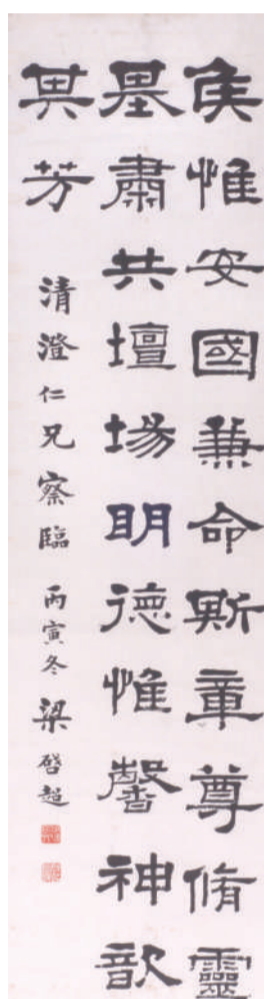 侯惟安國兼命斯章尊脩靈
基肅共壇場明德惟馨神歆
其芳
清澄仁兄察臨 丙寅冬 梁啓超